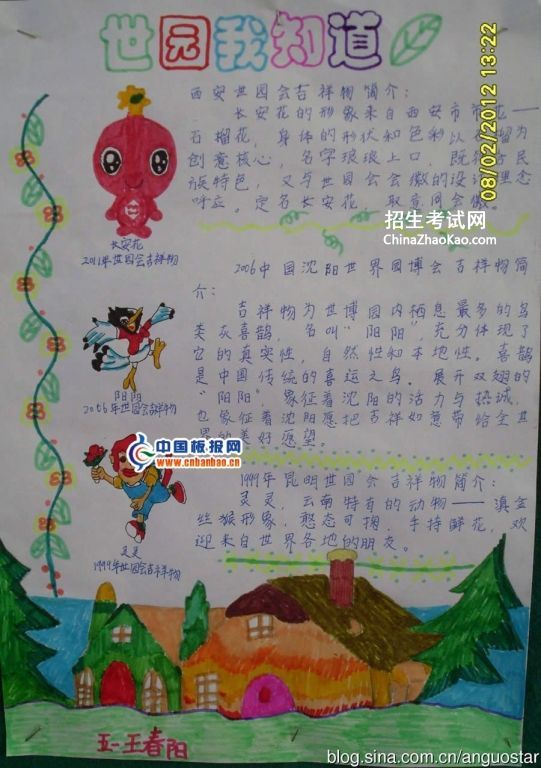 世园我知道
08/02/2012 13:22
西安世园会吉祥物简介：
长安花的形象来自西安市市花——
石榴花，身体的形状和色彩以石榴为
创意核心，名字琅琅上口，既有
民
族特色，又与世园会会徽的设计理念
呼应。定名长安花，取意同会徽。
招生考试网
ChinaZhaoKao.com
长安花
2011年世园会吉祥物
2006中国沈阳世界园博会吉祥物简
介：
吉祥物为世博园内栖息最多的鸟
类灰喜鹊，名叫“阳阳”，充分体现了
它的真实性，自然性和本地性。喜鹊
是中国传统的喜运之鸟。展开双翅的
“阳阳”象征着沈阳的活力与热诚，
也象征着沈阳愿把吉祥如意带给全世
界的美好愿望。
阳阳
2006年世园会吉祥物
中国板报网
www.cnbanbao.cn
1999年昆明世园会吉祥物简介：
灵灵，云南特有的动物——滇金
丝猴形象，憨态可掬，手持鲜花，欢
迎来自世界各地的朋友。
灵灵
1999年世园会吉祥物
五一王春阳
blog.sina.com.cn/anguostar